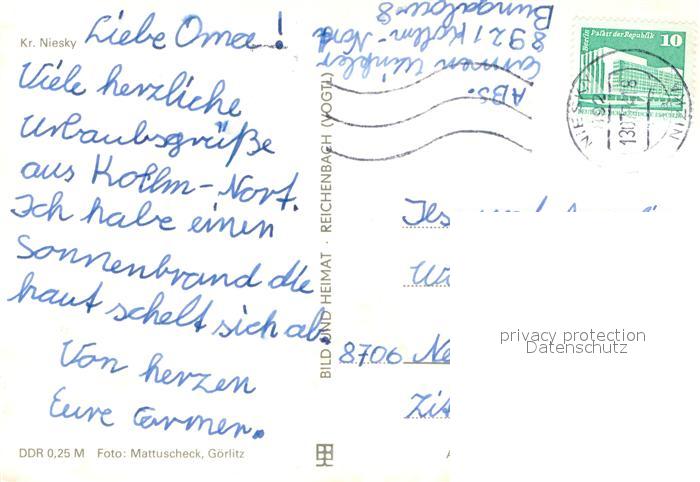 Kr. Niesky
Liebe Oma!
Viele herzliche
Urlaubsgrüße
aus Kollm-Nort.
Ich habe einen
Sonnenbrand die
haut schelt sich ab.
Von herzen
Eure Carmen.
DDR 0,25 M Foto: Mattuscheck, Görlitz
BILD UND HEIMAT · REICHENBACH (VOGTL)
ABS.
Carmen Winkler
8921 Kollm-Nord
Bungalow 8
Berlin Palast der Republik
10
NIESKY
8706 Ne
Zit
privacy protection
Datenschutz